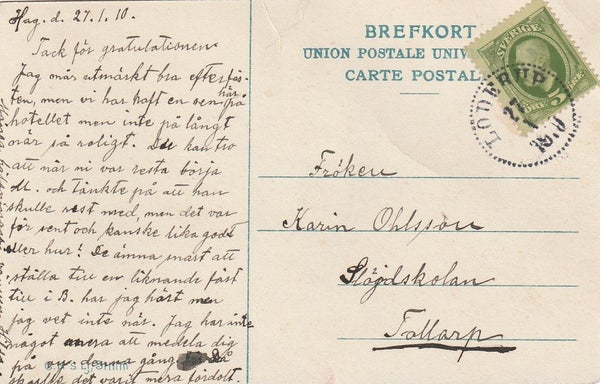 Hag. d. 27.1.10.
Tack för gratulationen
Jag mår utmärkt bra efter fäs-
ten, men vi har haft en sen här på
hotellet men inte på långt
när så roligt. Du kan tro
att när ni var resta börja
dt. och tänkte på att han
skulle rest med, men det var
för sent och kanske lika godt
eller hur! De ämna snart att
ställa till en liknande fäst
till i B. har jag hört men
jag vet inte när. Jag har inte
något annat att meddela dig
på denna gång
skulle det varit mera fördolt.
BREFKORT
UNION POSTALE
CARTE POSTALE
SVERIGE
5 ÖRE
LÖDERUP
27
1
Fröken
Karin Ohlsson
Slöjdskolan
Tollarp